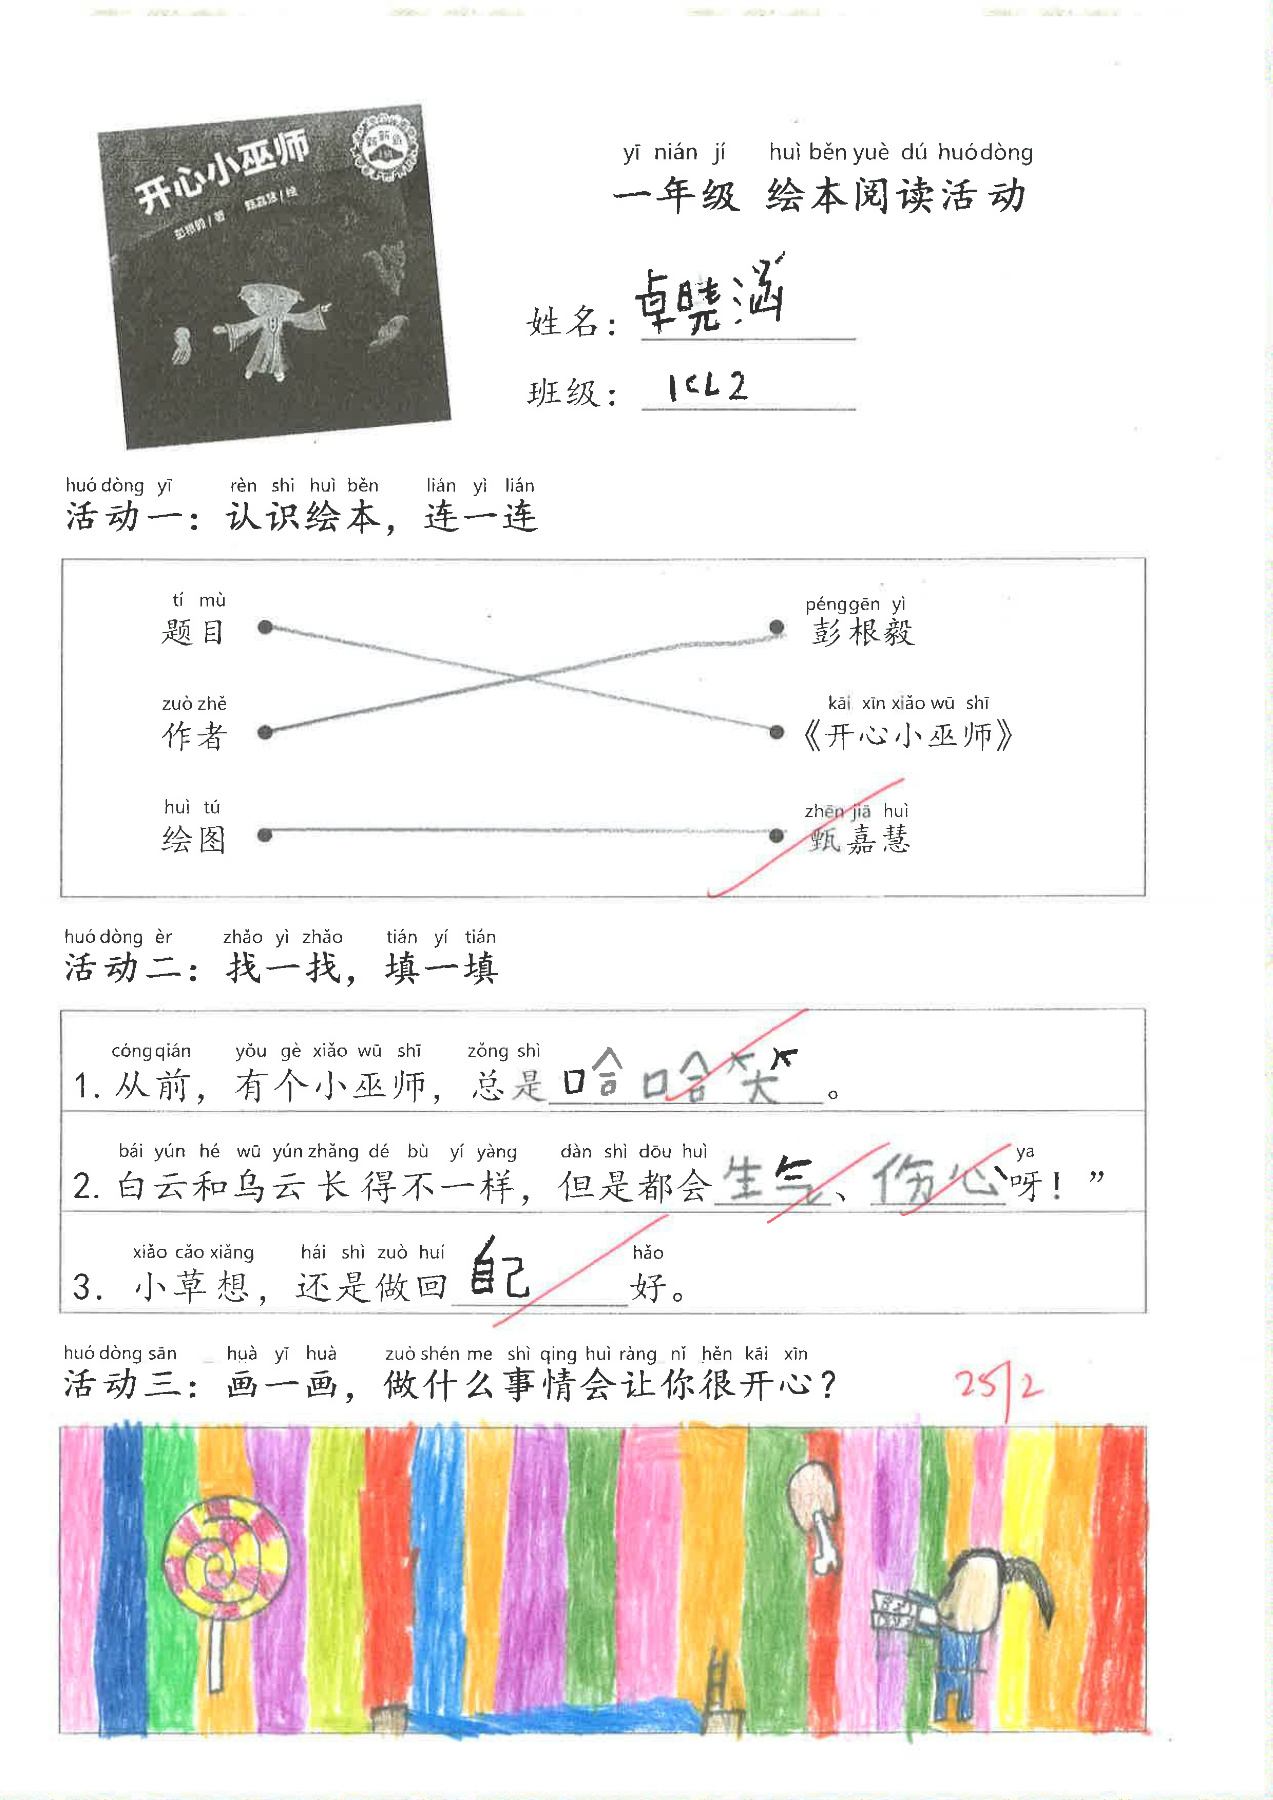 开心小巫师
彭根毅/著 甄嘉慧/绘
yī nián jí huì běn yuè dú huó dòng
一年级 绘本阅读活动
姓名：卓晓涵
班级：1CL2
huó dòng yī rèn shi huì běn lián yì lián
活动一：认识绘本，连一连
tí mù pénggēn yì
题目 彭根毅
zuò zhě kāi xīn xiǎo wū shī
作者 《开心小巫师》
huì tú zhēn jiā huì
绘图 甄嘉慧
huó dòng èr zhǎo yì zhǎo tián yí tián
活动二：找一找，填一填
cóng qián yǒu gè xiǎo wū shī zǒng shì
1. 从前，有个小巫师，总是哈哈笑。
bái yún hé wū yún zhǎng dé bù yí yàng dàn shì dōu huì ya
2. 白云和乌云长得不一样，但是都会生气、伤心呀！”
xiǎo cǎo xiǎng hái shì zuò huí hǎo
3. 小草想，还是做回自己好。
huó dòng sān huà yī huà zuò shén me shì qing huì ràng nǐ hěn kāi xīn
活动三：画一画，做什么事情会让你很开心？
25/2